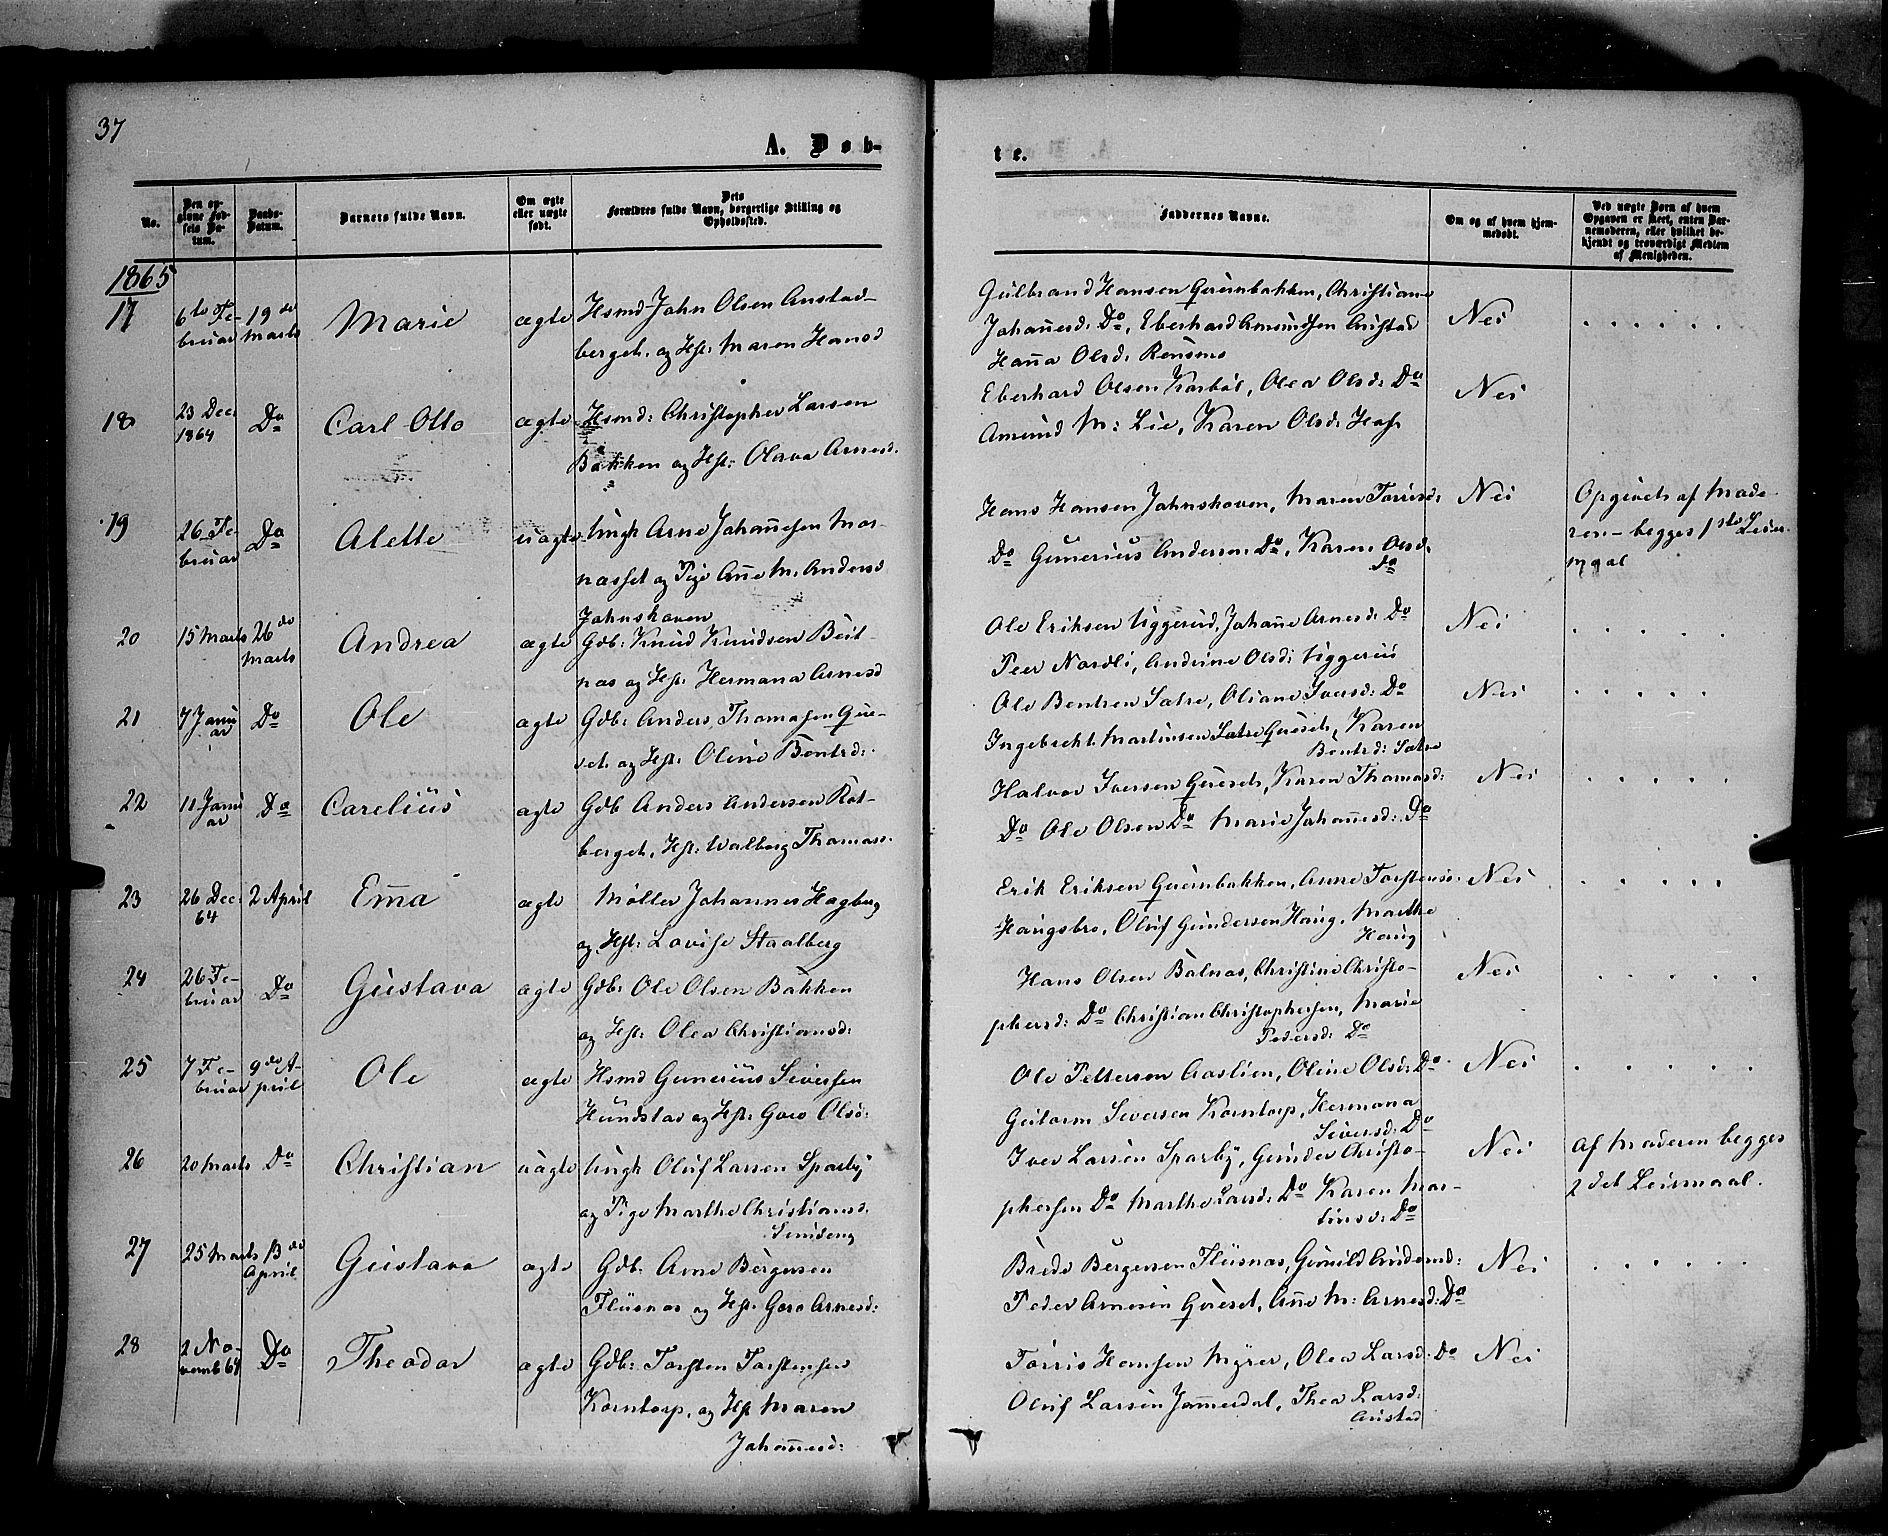 37
A. Døb-
te.
No.
Den op-
givne Fød-
sels Da-
tum.
Daabs-
Datum.
Barnets fulde Navn.
Om ægte
eller uægte
født.
Dets
Forældres fulde Navn, borgerlige Stilling og
Opholdssted.
Faddernes Navne.
Om og af hvem hjem-
medøbt.
Ved uægte Børn af hvem
Opgaven er skeet, enten Bar-
nemoderen, eller hvilket be-
kjendt og troværdigt Medlem
af Menigheden.
1865
17
6te Fe-
bruar
19de
Marts
Marie
ægte
Hsmd John Olsen Austad-
berget, og Hst: Maren Hansd
Gulbrand Hansen Gruenbakken, Christiane
Johannesd: Do, Eberhard Amundsen Austad
Hanna Olsd:
Nei
18
23 Dec:
1864
Do
Carl Otto
ægte
Hsmd: Christopher Larsen
Bakken og Hst: Olava Arnesd.
Eberhard Olsen Karbøl, Olea Olsd: Do
Amund M: Lie, Karen Olsd:
Nei
19
26 Fe-
bruar
Do
Alette
uægte
Ungk Arne Johannesen Mor-
næsset og Pige Anne M. Andersd
Johnshoven
Hans Hansen Johnshoven, Maren Torrisd:
Do Gunerius Andersen Do, Karen Olsd.
do
Nei
Opgivet af Mode-
ren - begges 1ste Leier-
maal
20
15 Marts
26de
Marts
Andrea
ægte
Gdb: Knud Knudsen Beit-
næs og Hst: Hermana Arnesd
Ole Eriksen Uggerud, Johanne Arnesd: Do
Peer Nordli, Andrine Olsd: Uggerud
Nei
21
7 Janu
ar
Do
Ole
ægte
Gdb: Anders Thomasen Gue-
set og Hst: Oline Bentsd:
Ole Bentsen Sætre, Oliane Iversd: Do
Ingebrekt Martinsen Sætre Gueset, Karen
Bentsd: Sætre
Nei
22
11 Janu
ar
Do
Carelius
ægte
Gdb Anders Andersen Rot-
berget, Hst: Walborg Thomasd.
Halvor Iversen Gueset, Karen Thomasd:
Do Ole Olsen Do Marie Johannesd: Do
Nei
23
26 Dec:
64
2 April
Emma
ægte
Møller Johannes Hagberg
og Hst: Lovise Staalberg
Erik Eriksen Gruenbakken, Anne Torstensd.
Haugsbro, Oluf Gundersen Haug, Marthe
Haug
Nei
24
26 Fe-
bruar
Do
Gustava
ægte
Gdb: Ole Olsen Bakken
og Hst: Olea Christiansd:
Hans Olsen Balnæs, Christine Christo-
phersd: Do Christian Christophersen, Marie
Pedersd: Do
Nei
25
7 Fe-
bruar
9de A-
pril
Ole
ægte
Hsmd Gunerius Siversen
Hundstad og Hst: Goro Olsd:
Ole Pettersen Aaslien, Oline Olsd: Do
Guttorm Siversen Korntorp, Hermana
Siversd: Do
Nei
26
20 Marts
Do
Christian
uægte
Ungk Oluf Larsen Sparby
og Pige Marthe Christiansd.
Sundeng
Iver Larsen Sparby, Gunder Christo-
phersen Do Marthe Larsd: Do Karen Mar-
tinsd: Do
Nei
af Moderen begges
2det Leiermaal.
27
25 Marts
13de
April
Gustava
ægte
Gdb: Arne Børgersen
Flusnæs og Hst: Goro Arnesd:
Brede Børgersen Flusnæs, Gunild Andersd:
Peder Arnesen Gueset, Anne M: Arnesd: Do
Nei
28
2 No-
vemb 64
Do
Theodor
ægte
Gdb: Torsten Torstensen
Korntorp, og Hst Maren
Johannesd:
Torris Hansen Myrer, Olea Larsd: Do
Oluf Larsen Jammerdal, Thea Larsd:
Austad
Nei